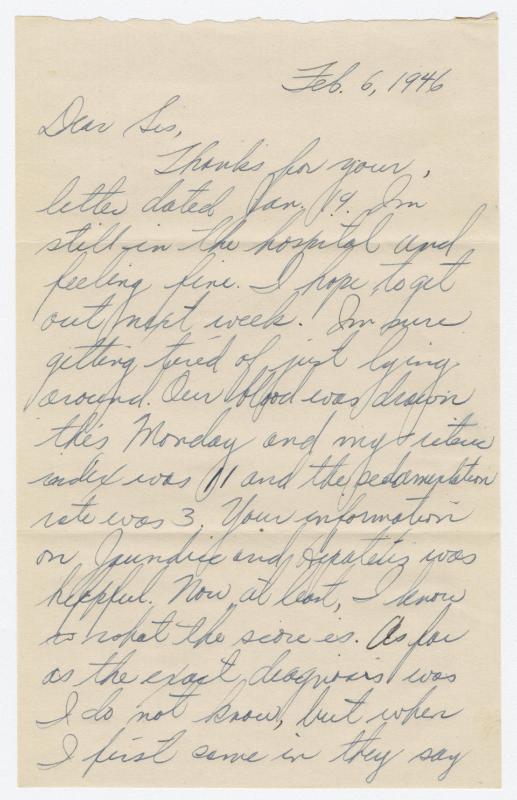 Feb. 6, 1946
Dear Sis,
Thanks for your
letter dated Jan. 19. Im
still in the hospital and
feeling fine. I hope to get
out next week. Im sure
getting tired of just lying
around. Our blood was drawn
this Monday and my icterus
index was 11 and the sedamentation
rate was 3. Your information
on Jaundice and Hepatetis was
helpful. Now at least, I know
what the score is. As far
as the exact diagnosis was
I do not know, but when
I first came in they say